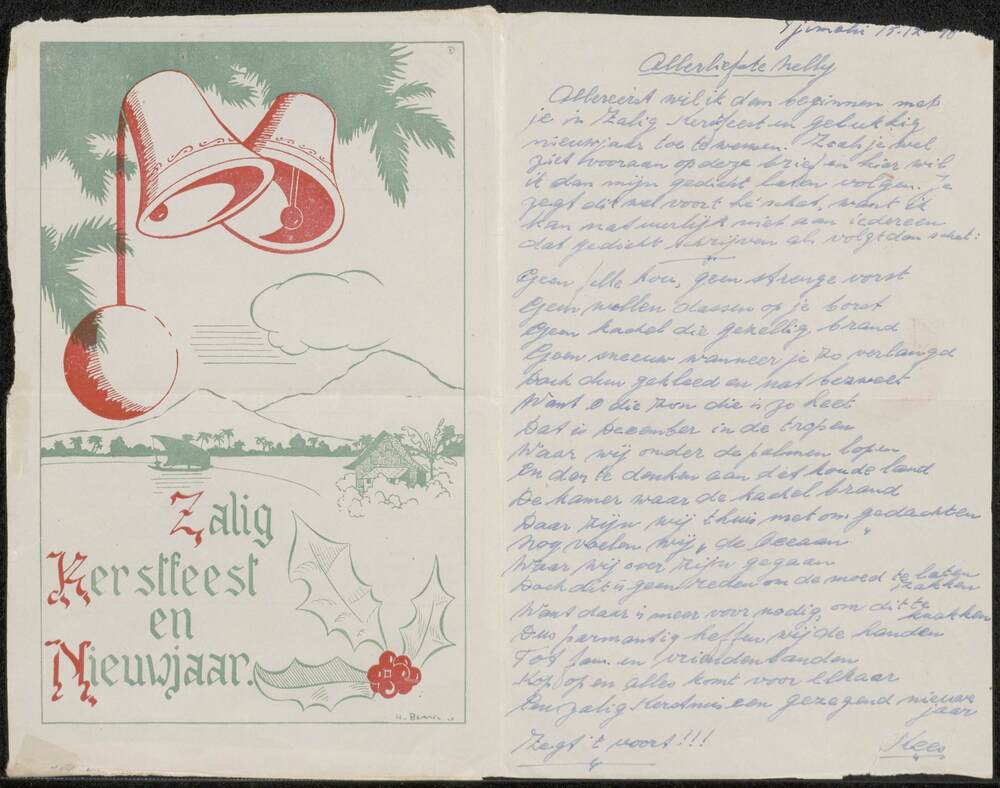 Zalig
Kerstfeest
en
Nieuwjaar.
Tjimahi 15-12-48
Allerliefste Nelly
Allereerst wil ik dan beginnen met
je in Zalig Kerstfeest en gelukkig
nieuwjaar toe te wensen. Zoals je wel
ziet vooraan op deze brief en hier wil
ik dan mijn gedicht laten volgen. Je
zegt dit wel voort hè schat, want ik
kan natuurlijk niet aan iedereen
dat gedicht schrijven als volgt dan schat:
Geen felle kou, geen strenge vorst
Geen wollen dassen op je borst
Geen kachel die gezellig brand
Geen sneeuw wanneer je zo verlangd
Doch dun gekleed en nat bezweet
Want o die zon die is zo heet
Dat is December in de tropen
Waar wij onder de palmen lopen
En dan te denken aan dat koude land
De kamer waar de kachel brand
Daar zijn wij thuis met ons gedachten
Nog voelen wij "de Oceaan"
Waar wij over zijn gegaan
Doch dit is geen reden om de moed te laten zakken
Want daar is meer voor nodig, om dit te knakken
Dus parmantig heffen wij de handen
Tot fam. en vriendenbanden
Kop op en alles komt voor elkaar
Een zalig Kerstmis een gezegend nieuwe jaar
Zegt 't voort!!!
Kees